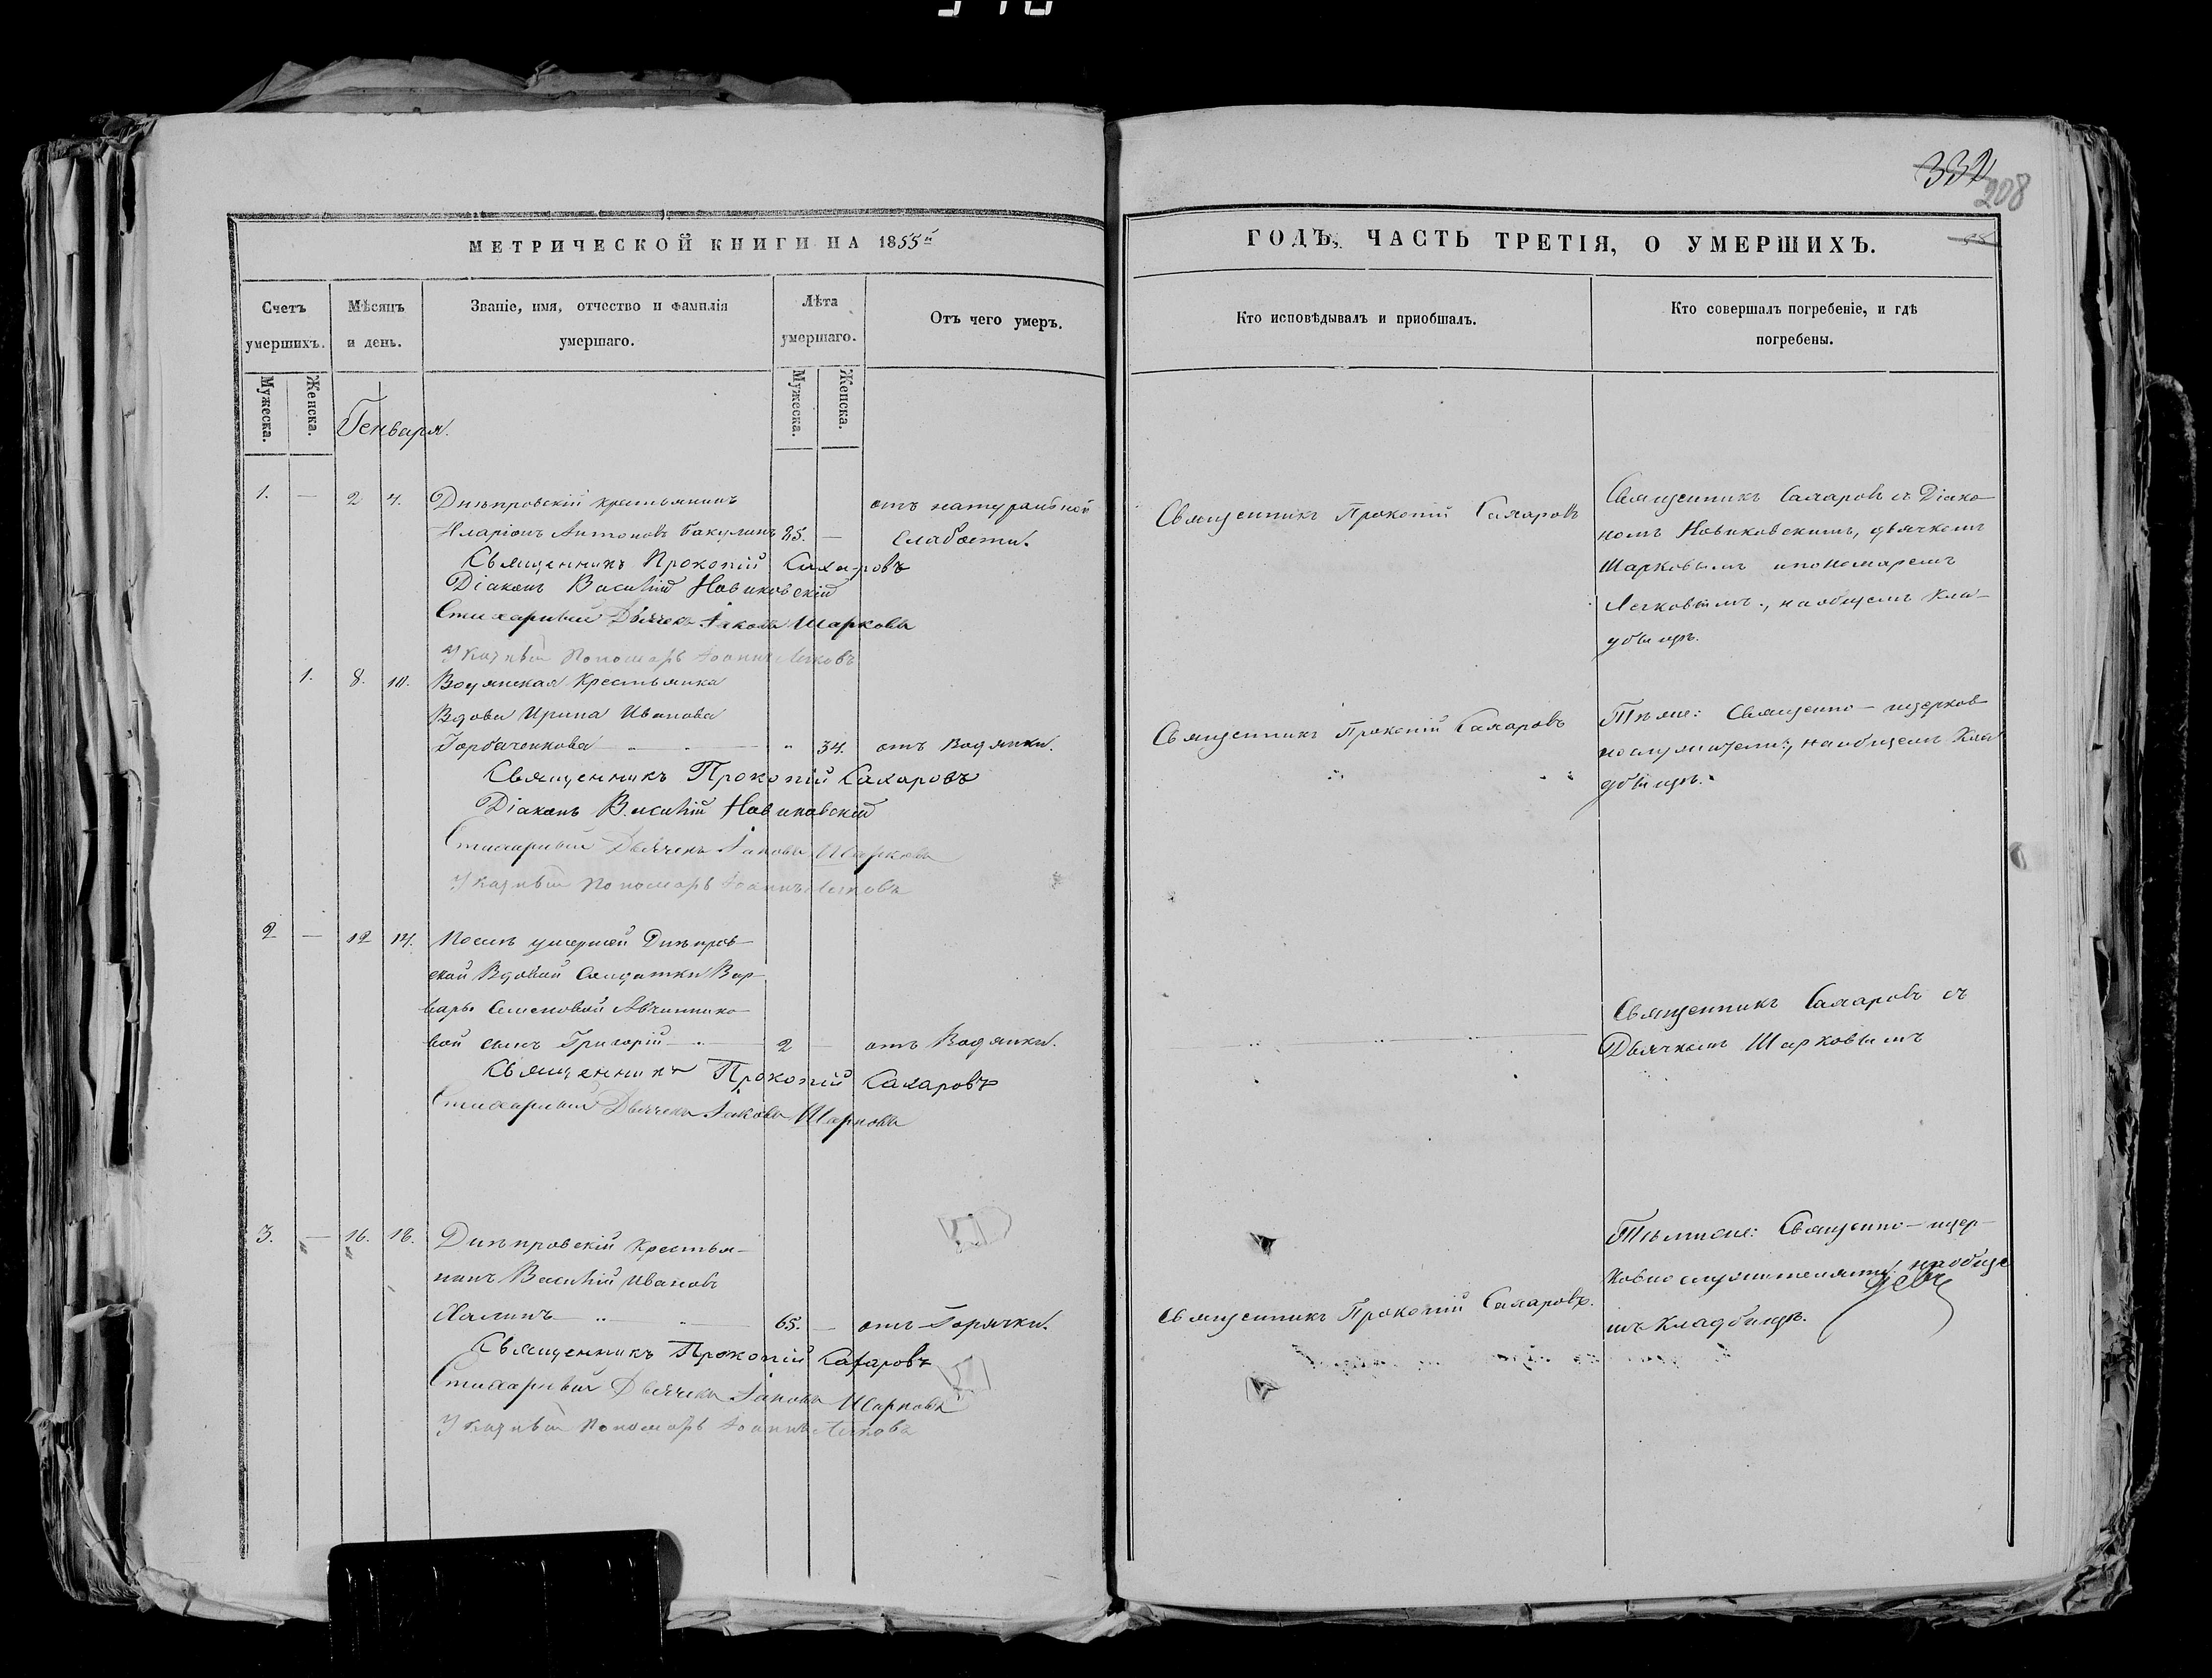 332
208
МЕТРИЧЕСКОЙ КНИГИ НА 1855й
Счетъ умершихъ.
Мѣсяцъ и день.
Званіе, имя, отчество и фамилія умершаго.
Лѣта умершаго.
Отъ чего умеръ.
Мужеска.
Женска.
Мужеска.
Женска.
Генваря.
1. — 2 4. Днѣпровскій крестьянинъ отъ натуральной
Иларіонъ Антоновъ Бакулинъ 85. — слабости.
Священникъ Прокопій Сахаровъ
Діаконъ Василій Новиковскій
Стихарный Дьячекъ Іаковъ Шарковъ
Указный Пономарь Іоаннъ Легковъ
1. 8. 10. Водянская Крестьянка
Вдова Ирина Иванова
Горбаченкова — „ 34. отъ Водянки.
Священникъ Прокопій Сахаровъ
Діаконъ Василій Новиковскій
Стихарный Дьячекъ Іаковъ Шарковъ
Указный Пономарь Іоаннъ Легковъ
2 — 12 14. Послѣ умершей Днѣпров-
ской Вдовой Солдатки Вар-
вары Семеновой
вой сынъ Григорій — 2 — отъ Водянки.
Священникъ Прокопій Сахаровъ
Стихарный Дьячекъ Іаковъ Шарковъ
3. — 16. 18. Днѣпровскій Крестья-
нинъ Василій Ивановъ
Халинъ — 65. — отъ Горячки.
Священникъ Прокопій Сахаровъ
Стихарный Дьячекъ Іаковъ Шарковъ
Указный Пономарь Іоаннъ Легковъ
ГОДЪ, ЧАСТЬ ТРЕТІЯ, О УМЕРШИХЪ.
Кто исповѣдывалъ и пріобщалъ.
Кто совершалъ погребеніе, и гдѣ погребены.
Священникъ Прокопій Сахаровъ
Священникъ Сахаровъ съ Діако-
номъ Новиковскимъ, дьячкомъ
Шарковымъ и пономаремъ
Легковымъ, на общемъ кла-
дбищѣ.
Священникъ Прокопій Сахаровъ
Тѣже: Священно-церков
нослужители, на общемъ Кла
дбищѣ.
Священникъ Сахаровъ съ
Дьячкомъ Шарковымъ
Священникъ Прокопій Сахаровъ.
Тѣмиже: Священно-цер-
ковнослужителями на обще
мъ кладбищѣ.